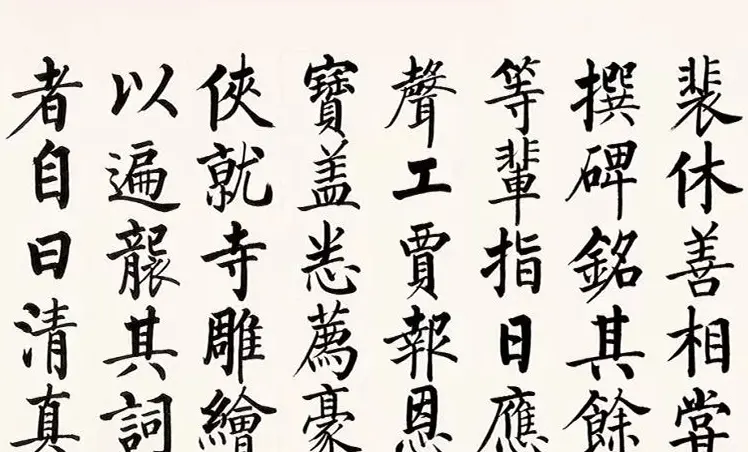 裴休善相當
撰碑銘其餘
等輩指日應
聲工賈報恩
寶盖悉薦豪
俠就寺雕繪
以遍襲其詞
者自曰清真